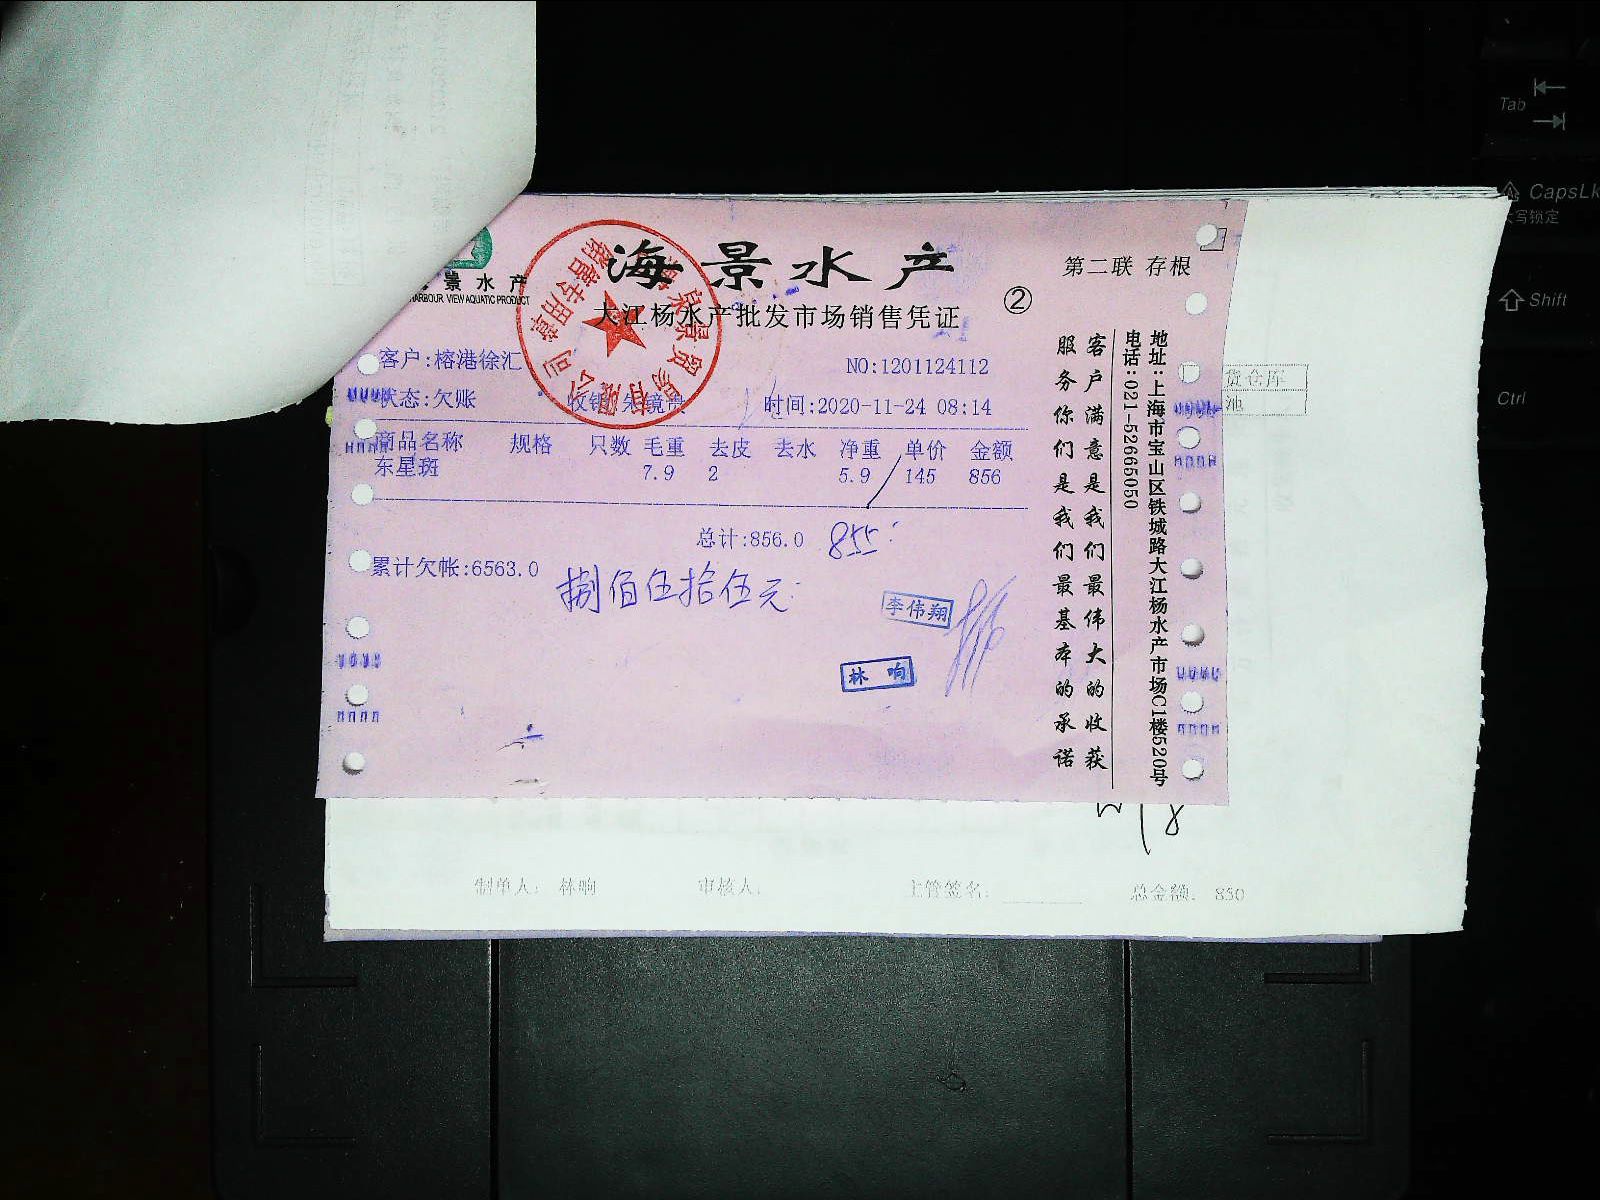 海景水产
景水产
HARBOUR VIEW AQUATIC PRODUCT
大江杨水产批发市场销售凭证
②
第二联 存根
客户:榕港徐汇
NO:1201124112
状态:欠账
时间:2020-11-24 08:14
商品名称 规格 只数 毛重 去皮 去水 净重 单价 金额
东星斑 7.9 2 5.9 145 856
总计:856.0 855
累计欠帐:6563.0
捌佰伍拾伍元
李伟翔
林响
客户满意是我们最伟大的收获
服务你们是我们最基本的承诺
地址:上海市宝山区铁城路大江杨水产市场C1楼520号
电话:021-52665050
销售专用章
制单人: 林响 审核人: 主管签名: 总金额: 850
Tab
CapsLk
大写锁定
Shift
Ctrl